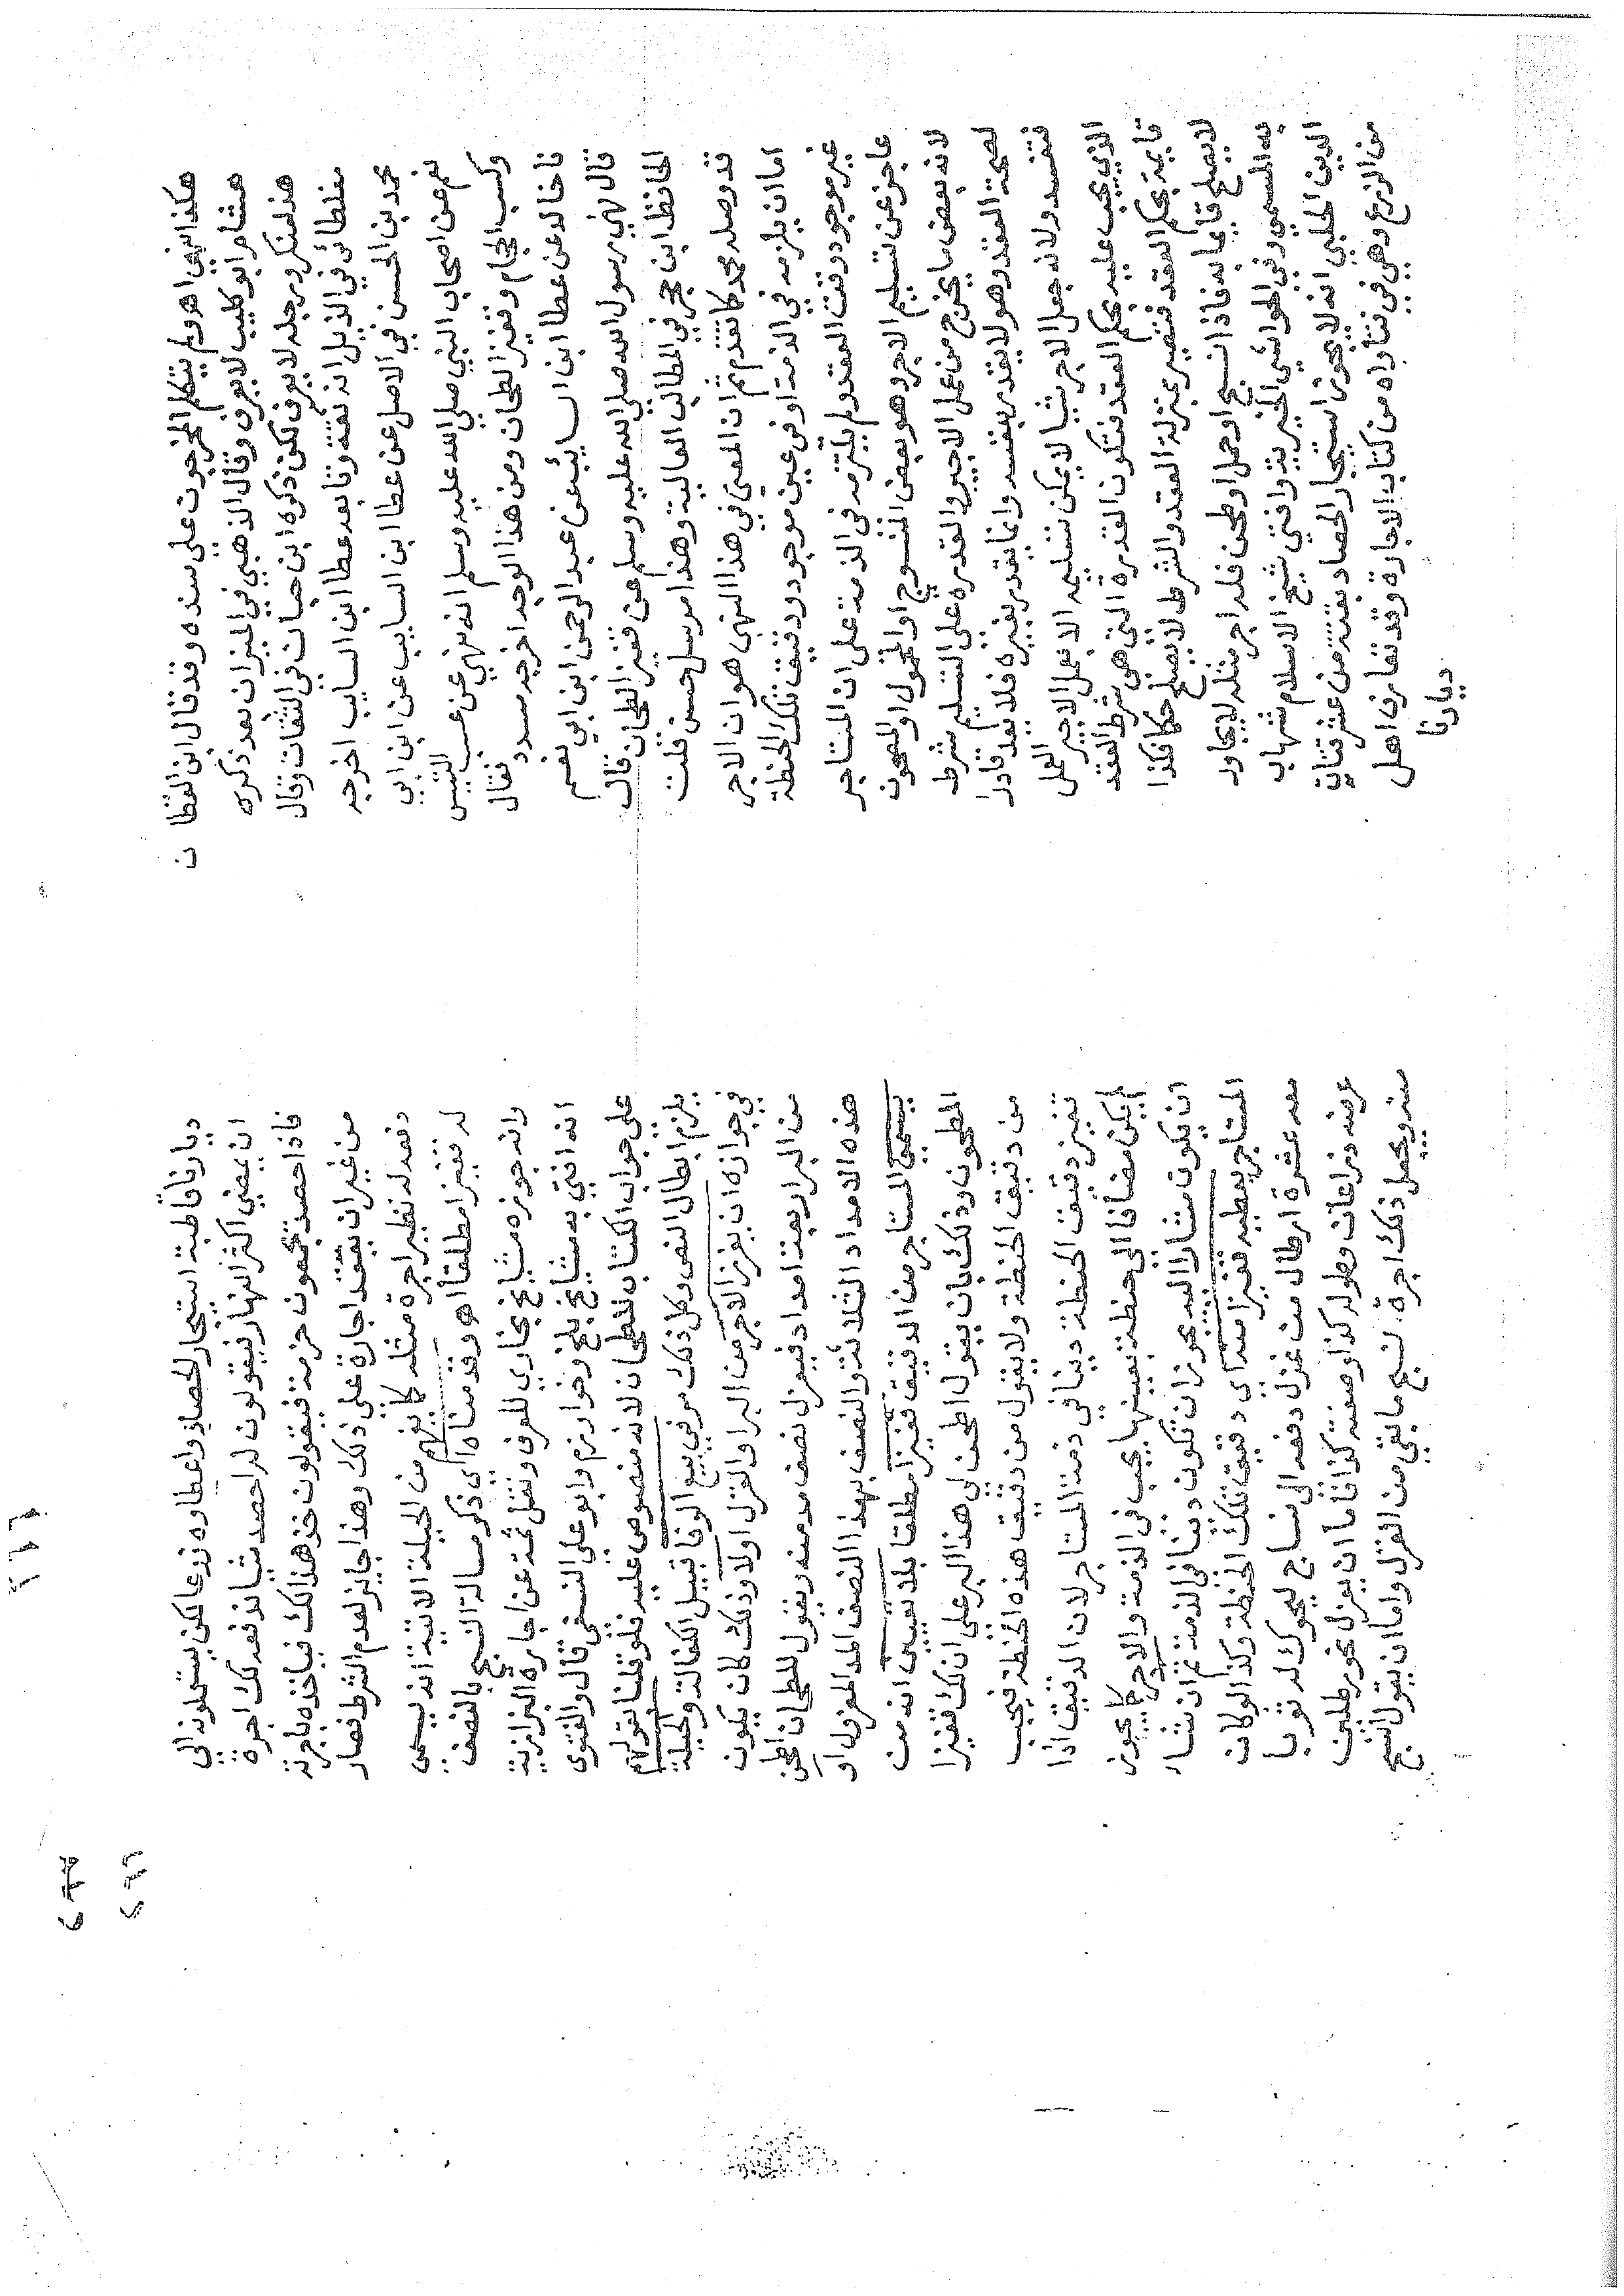 هكذا نهي اهـ ولم يتكلم المخرجون علي سنده وقد قال ابن القطان
هشام ابو كليب لا يعرف وقال الذهبي في الميزان بعد ذكره
هذا منكر ورجله لا يعرف لكن ذكره ابن حبان في الثقات وقال
مغلطائي في الذيل انه ثقة وتابعه عطا ابن السايب اخرجه
محمد بن الحسن في الاصل عن عطا ابن السايب عن ابن ابي
نعم عن اصحاب النبي صلي الله عليه وسلم انه نهي عن عسب التيس
وكسب الحجام وقفيز الطحان ومن هذا الوجه اخرجه مسدد فقال
نا خالد عن عطا ابن السايب عن عبد الرحمن ابن ابي نعم
قال نهي رسول الله صلي الله عليه وسلم عن قفيز الطحان قال
الحافظ ابن حجر في المطالب العالية وهذا مرسل حسن قلت
قد وصله محمد كما تقدم ثم ان المعني في هذا النهى هو ان الاجر
اما ان يلزمه في الذمة او في عين موجود ودقيق تلك الحنطة
غير موجود وقت العقد ولم يلتزمه في الذمة على ان المستاجر
عاجز عن تسليم الاجر وهو بعض المنسوج او المحمول او المطحون
لانه بعض ما يخرج من عمل الاجير والقدره على التسليم شرط
لصحة العقد وهو لا يقدر بنفسه وانما يقدر بغيره فلا يعد قادرا
فتفسد ولانه جعل الاجر شيا لا يمكن تسليمه الا بعمل الاجير العمل
الذي يجب عليه بحكم العقد فتكون القدرة التي هي شرط العقد
قايمة بحكم العقد فتصير بمنزلة العقد والشرط لا يصلح حكما فكذا
لا يصلح قايما به فاذا نسج او حمل او طحن فله اجر مثله لا يجاوز
به المسمي وفي الحواشي الخيرية وافتي شيخ الاسلام شهاب
الدين الحلبي انه لا يجوز استيجار الحصاد بقتة من عشر قتات
من الزرع وهي في فتاواه من كتاب الاجارة وقد تعارف اهل
ديارنا
ديارنا قاطبة استيجار الحصاد واعطاوه زرعا لكن يستعملونه الي
ان يمضي اكثر النهار فيقولون له احصد شيا ندفعه لك اجرة
فاذا حصد يجمعون حزمة فيقولون خذ هذا لك فياخذه باجرته
من غير ان يعقد اجارة علي ذلك وهذا جايز لعدم الشرط فصار
دفعه له نظير اجرة مثله كما يفهم من الحيلة الاتية انه يسمي
له قفيزا مطلقا اهـ وقدمناه اي ذكر مسالة النسج بالنصف
وانه جوزه مشايخ بخاري للعرف ونقل ثمة عن اجارة البزازية
انه افتي به مشايخ بلخ وخوارزم وابو علي النسفي قال والفتوى
على جواب الكتاب للطحان لانه منصوص عليه فلو قلنا نقولهم
يلزم ابطال النص وكل ذلك مر في بيع الوفا قبيل الكفالة والحيلة
في جوازه ان يفرز الاجر من البر او الغزل اولا وذلك كان يكون
من البر اربعة امداد فيعزل نصف مد منه ويقول للطحان اطحن
هذه الامداد الثلاثة والنصف بهذا النصف المد المعزول او
يسمي المستاجر من الدقيق قفيزا مطلقا بلا تعيين انه من
المطحون وذلك بان يقول اطحن لي هذا البر على ان لك قفيزا
من دقيق الحنطة ولا يقول من دقيق هذه الحنطة فيجب
قفيز دقيق الحنطة دينا في ذمة المستاجر لان الدقيق اذا
لم يكن مضافا الى حنطة بعينها يجب في الذمة والاجر كما يجوز
ان يكون مشارا اليه يجوز ان تكون دينا في الذمة ثم ان شاء
المستاجر يعطيه قفيزا منه اي دقيق تلك الحنطة وكذا لو كان
معه عشرة ارطال من غزل دفعه الى نساج ليحوك له ثوبا
عرضه ذراعان وطوله كذا وصفته كذا فاما ان يعزل نحو رطلين
منه ويجعل ذلك اجرة لنسج ما بقي من الغزل واما ان يقول انسج